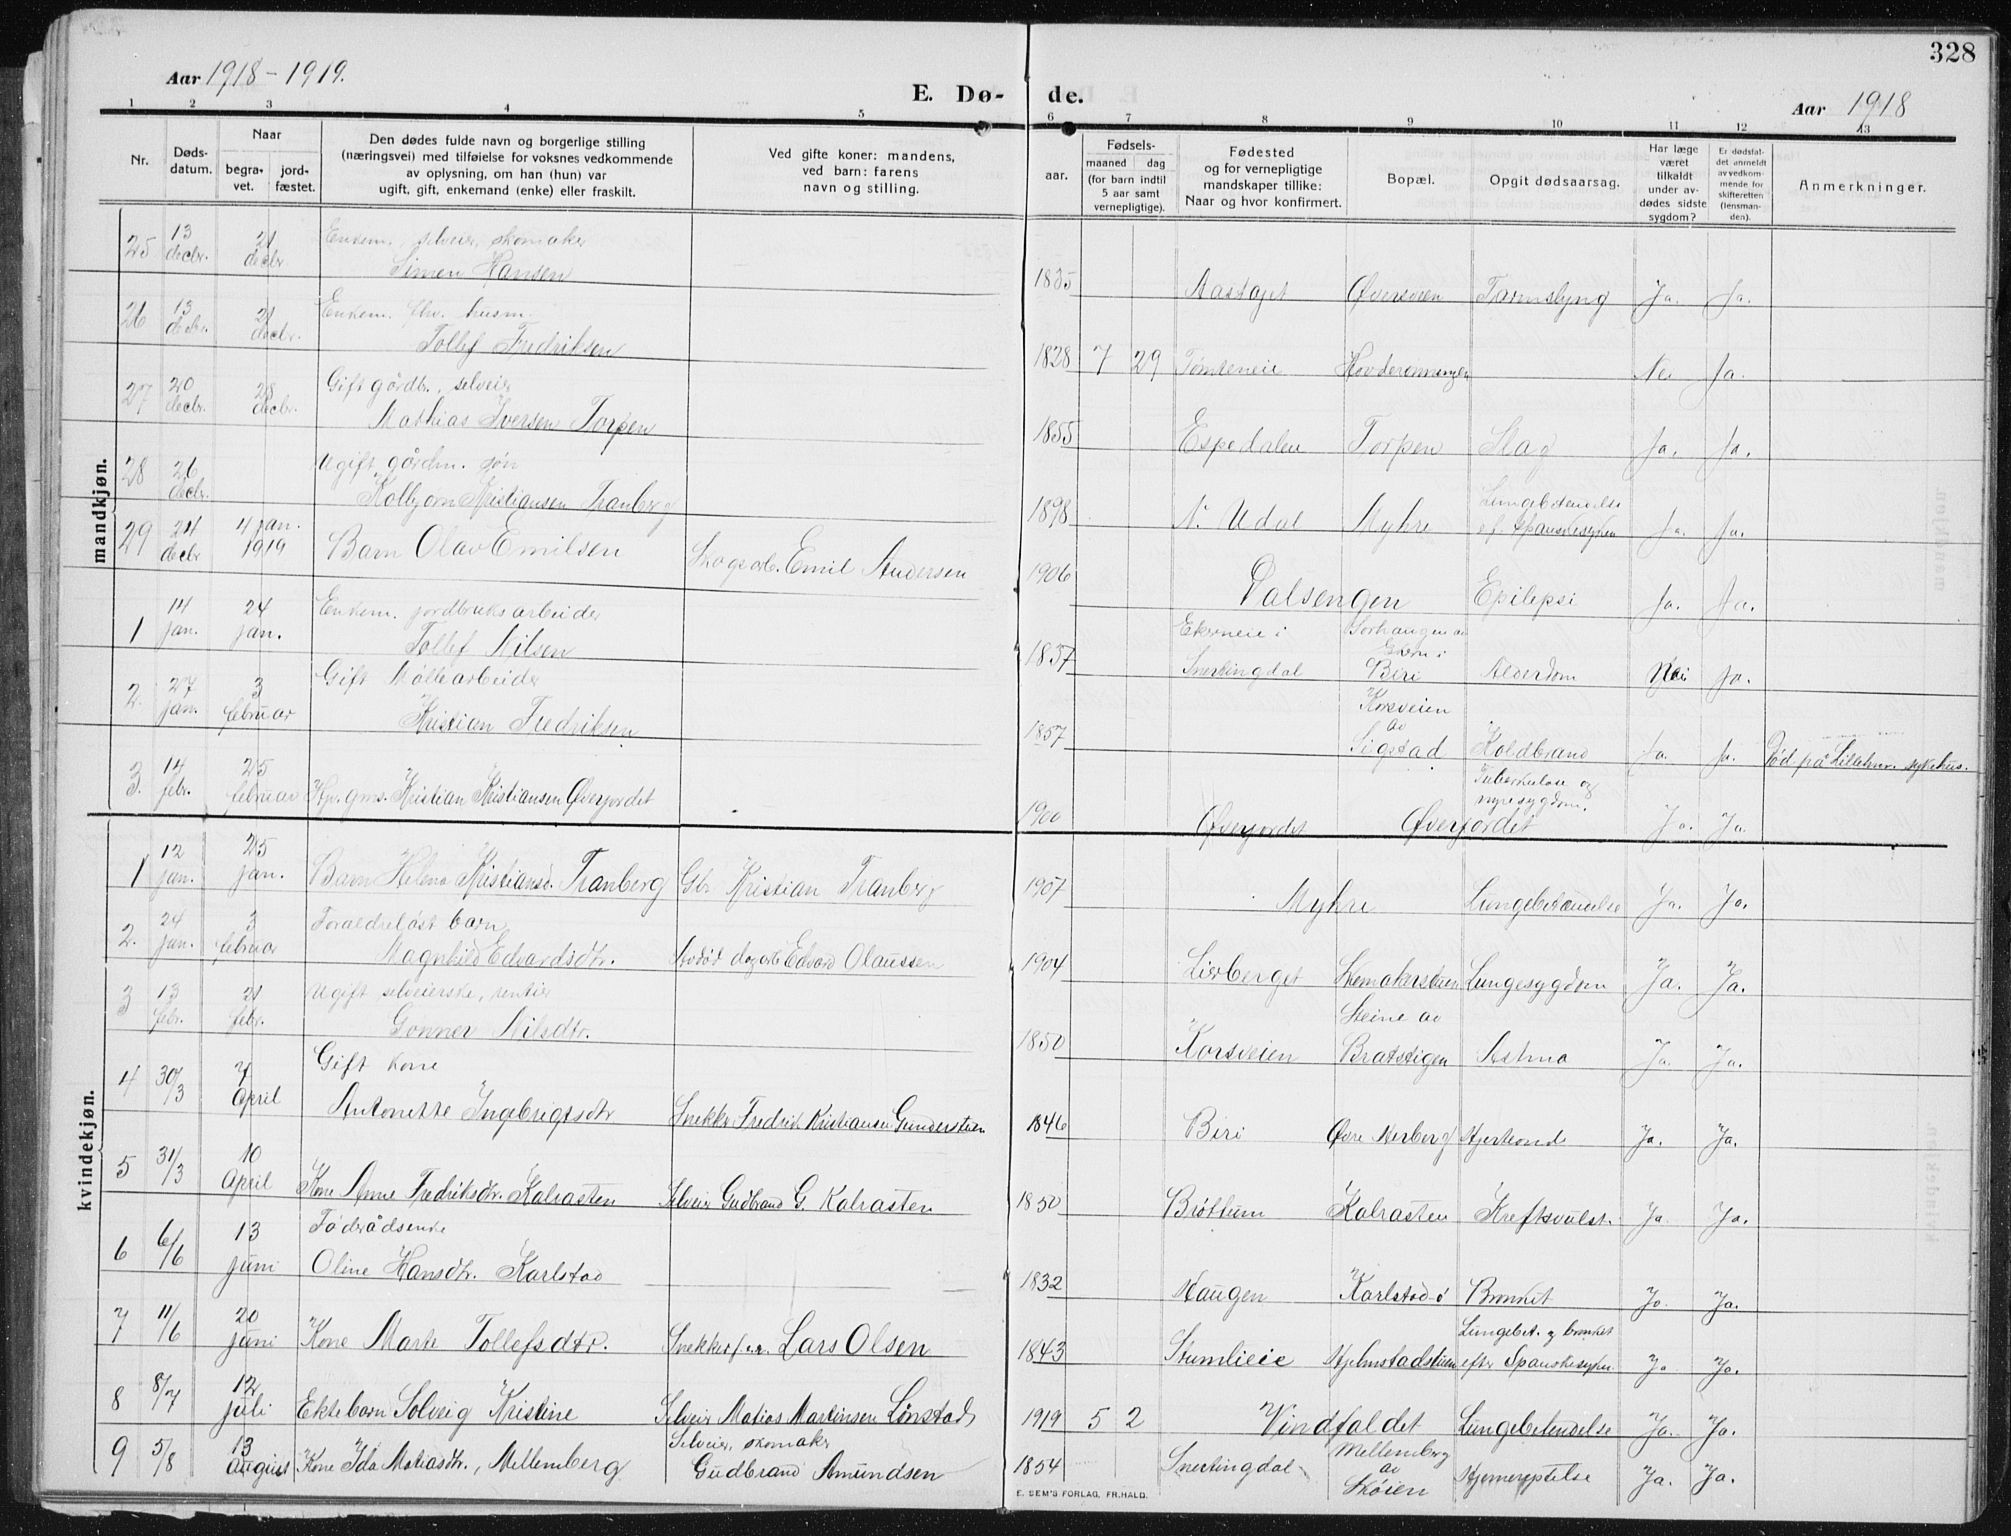 328
Aar 1918 - 1919.
E. Dø- de.
Aar 1918
1 2 3 4 5 6 7 8 9 10 11 12 13
Nr.
Døds-
datum.
Naar
begra-
vet.
jord-
fæstet.
Den dødes fulde navn og borgerlige stilling
(næringsvei) med tilføielse for voksnes vedkommende
av oplysning, om han (hun) var
ugift, gift, enkemand (enke) eller fraskilt.
Ved gifte koner: mandens,
ved barn: farens
navn og stilling.
aar.
Fødsels-
maaned dag
(for barn indtil
5 aar samt
vernepligtige).
Fødested
og for vernepligtige
mandskaper tillike:
Naar og hvor konfirmert.
Bopæl.
Opgit dødsaarsag.
Har læge
været
tilkaldt
under av-
dødes sidste
sygdom?
Er dødsfal-
det anmeldt
av vedkom-
mende for
skifteretten
(lensman-
den).
Anmerkninger.
mandkjøn.
25 13 decbr. 21 decbr. Enkem., selveier, skomaker
Simen Hansen 1835 Aastajet Øversveen Tarmslyng Ja. Ja.
26 13 decbr. 21 decbr. Enkem. fhv. husm.
Tollef Fredriksen 1828 7 29 Tømteneie Hovderønningen Nei Ja.
27 20 decbr. 28 decbr. Gift gårdb., selveier
Mathias Iversen Torpen 1855 Espedalen Torpen Slag Ja. Ja.
28 26 decbr. Ugift gårdm. søn
Kolbjørn Kristiansen Tranberg 1898 N. Udal Myhre Lungebetendelse
ef. spanskesyken Ja. Ja.
29 24 decbr 4 jan. 1919 Barn Olav Emilsen Skogsarb. Emil Andersen 1906 Dalsengen Epilepsi Ja. Ja.
1 14 jan. 24 jan. Enkem. jordbruksarbeider
Tollef Nilsen 1837 Ekerneie i
Snertingdal Sorhaugen av
Ekern i
Biri Alderdom Nei Ja.
2. 27 jan. 3 februar Gift Møllearbeider
Kristian Fredriksen 1857 Korsveien
av
Sigstad Koldbrand Ja. Ja. Død på Lilleham. sykehus.
3. 14 febr. 25 februar Kristian Kristiansen Øverjordet 1900 Øverjordet Øverjordet Tuberkulose og
nyresygdom. Ja. Ja.
kvindekjøn.
1 12 jan. 25 jan. Barn Helena Kristiansd. Tranberg Gbr Kristian Tranberg 1907 Myhre Lungebetendelse Ja. Ja.
2. 24 jan. 3 februar Foraldreløst barn
Magnhild Edvardsdtr. Avdød dagarb Edvard Olaussen 1904 Lierberget Skomakerstuen Lungesygdom Ja. Ja.
3 13 febr. 21 febr. Ugift selveierske, rentier
Gonner Nilsdtr. 1850 Korsveien Steine av
Bratstigen Astma Ja. Ja.
4 30/3 7 April Gift kone
Antonette Ingebrigtsdtr Snekker Fredrik Kristiansen Gunderstuen 1846 Biri Øvre Herberg Hjerteonde Ja. Ja.
5 31/3 10 April Kone Anne Fredriksdtr. Kalrasten Selveier Gudbrand G. Kalrasten 1850 Brøttum Kalrasten Kreftsvulst. Ja. Ja.
6 6/6 13 juni Føderådsenke
Oline Hansdtr. Karlstad 1832 Haugen Karlstad ø Bronkit Ja. Ja.
7 11/6 20 juni Kone Marte Tollefsdtr. Snekker Lars Olsen 1843 Stumlieie Hjelmstadstuen Lungebet. og bronkit
efter Spanskesyken Ja. Ja.
8 8/7 12 juli Ektebarn Solveig Kristine Selveier Matias Martinsen Lønstad 1919 5 2 Vindfaldet Lungebetendelse Ja. Ja.
9 5/8 13 august Kone Ida Matiasdtr., Mellemberg Selveier, skomaker
Gudbrand Amundsen 1854 Snertingdal Mellemberg
av
Skøien Hjernerystelse Ja. Ja.
E. SEM'S FORLAG, FR.HALD.